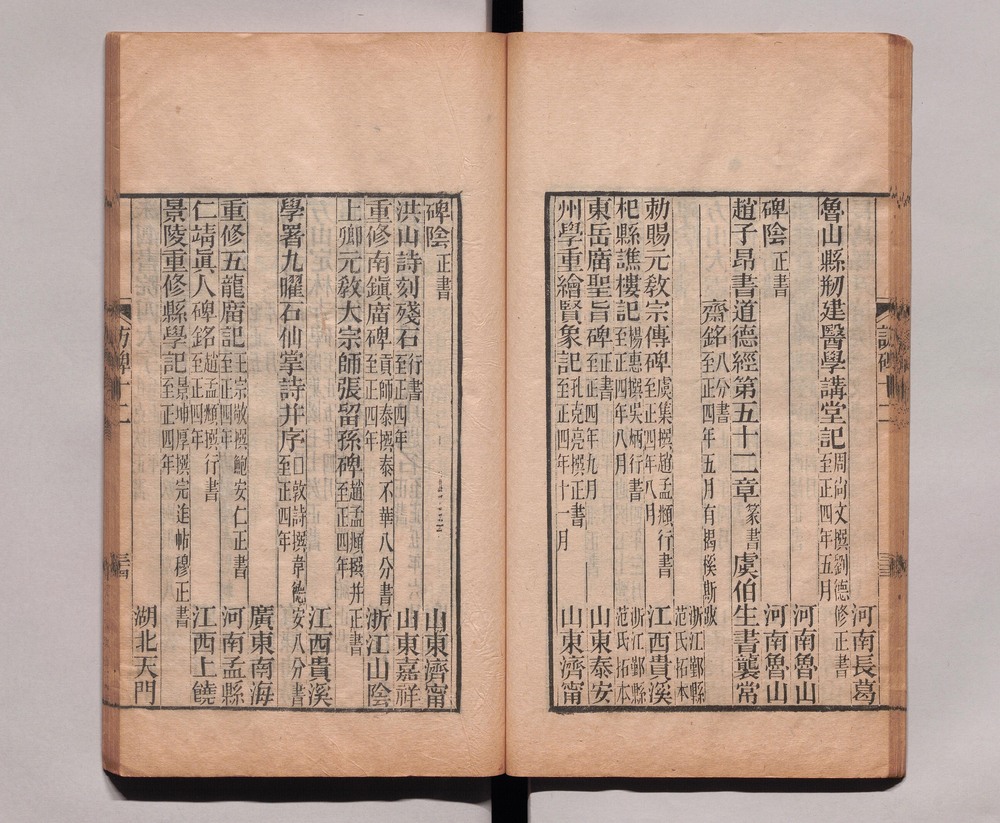 河南長葛
魯山縣刱建醫學講堂記周尙文撰劉德修正書至正四年五月
河南魯山
碑陰正書
河南魯山
趙子昂書道德經第五十二章篆書虞伯生書襲常
齋銘八分書至正四年五月有揭傒斯跋
浙江鄞縣范氏拓本
勅賜元敎宗傳碑虞集撰趙孟頫行書至正四年八月
江西貴溪
杞縣譙樓記楊惠撰吳炳行書至正四年八月
浙江鄞縣范氏拓本
東岳廟聖旨碑正書至正四年九月
山東泰安
州學重繪賢象記孔克亮撰正書至正四年十一月
山東濟甯
訪碑十二
碑陰正書
山東濟甯
洪山詩刻殘石行書至正四年
山東嘉祥
重修南鎭廟碑貢師泰撰泰不華八分書至正四年
浙江山陰
上卿元敎大宗師張留孫碑趙孟頫撰并正書至正四年
江西貴溪
學署九曜石仙掌詩幷序□敦詩撰韋德安八分書至正四年
廣東南海
重修五龍廟記王宗敬撰鮑安仁正書至正四年
河南孟縣
仁靖眞人碑銘趙孟頫撰行書至正四年
江西上饒
景陵重修縣學記景坤厚撰完迮帖穆正書至正四年
湖北天門
訪碑十二